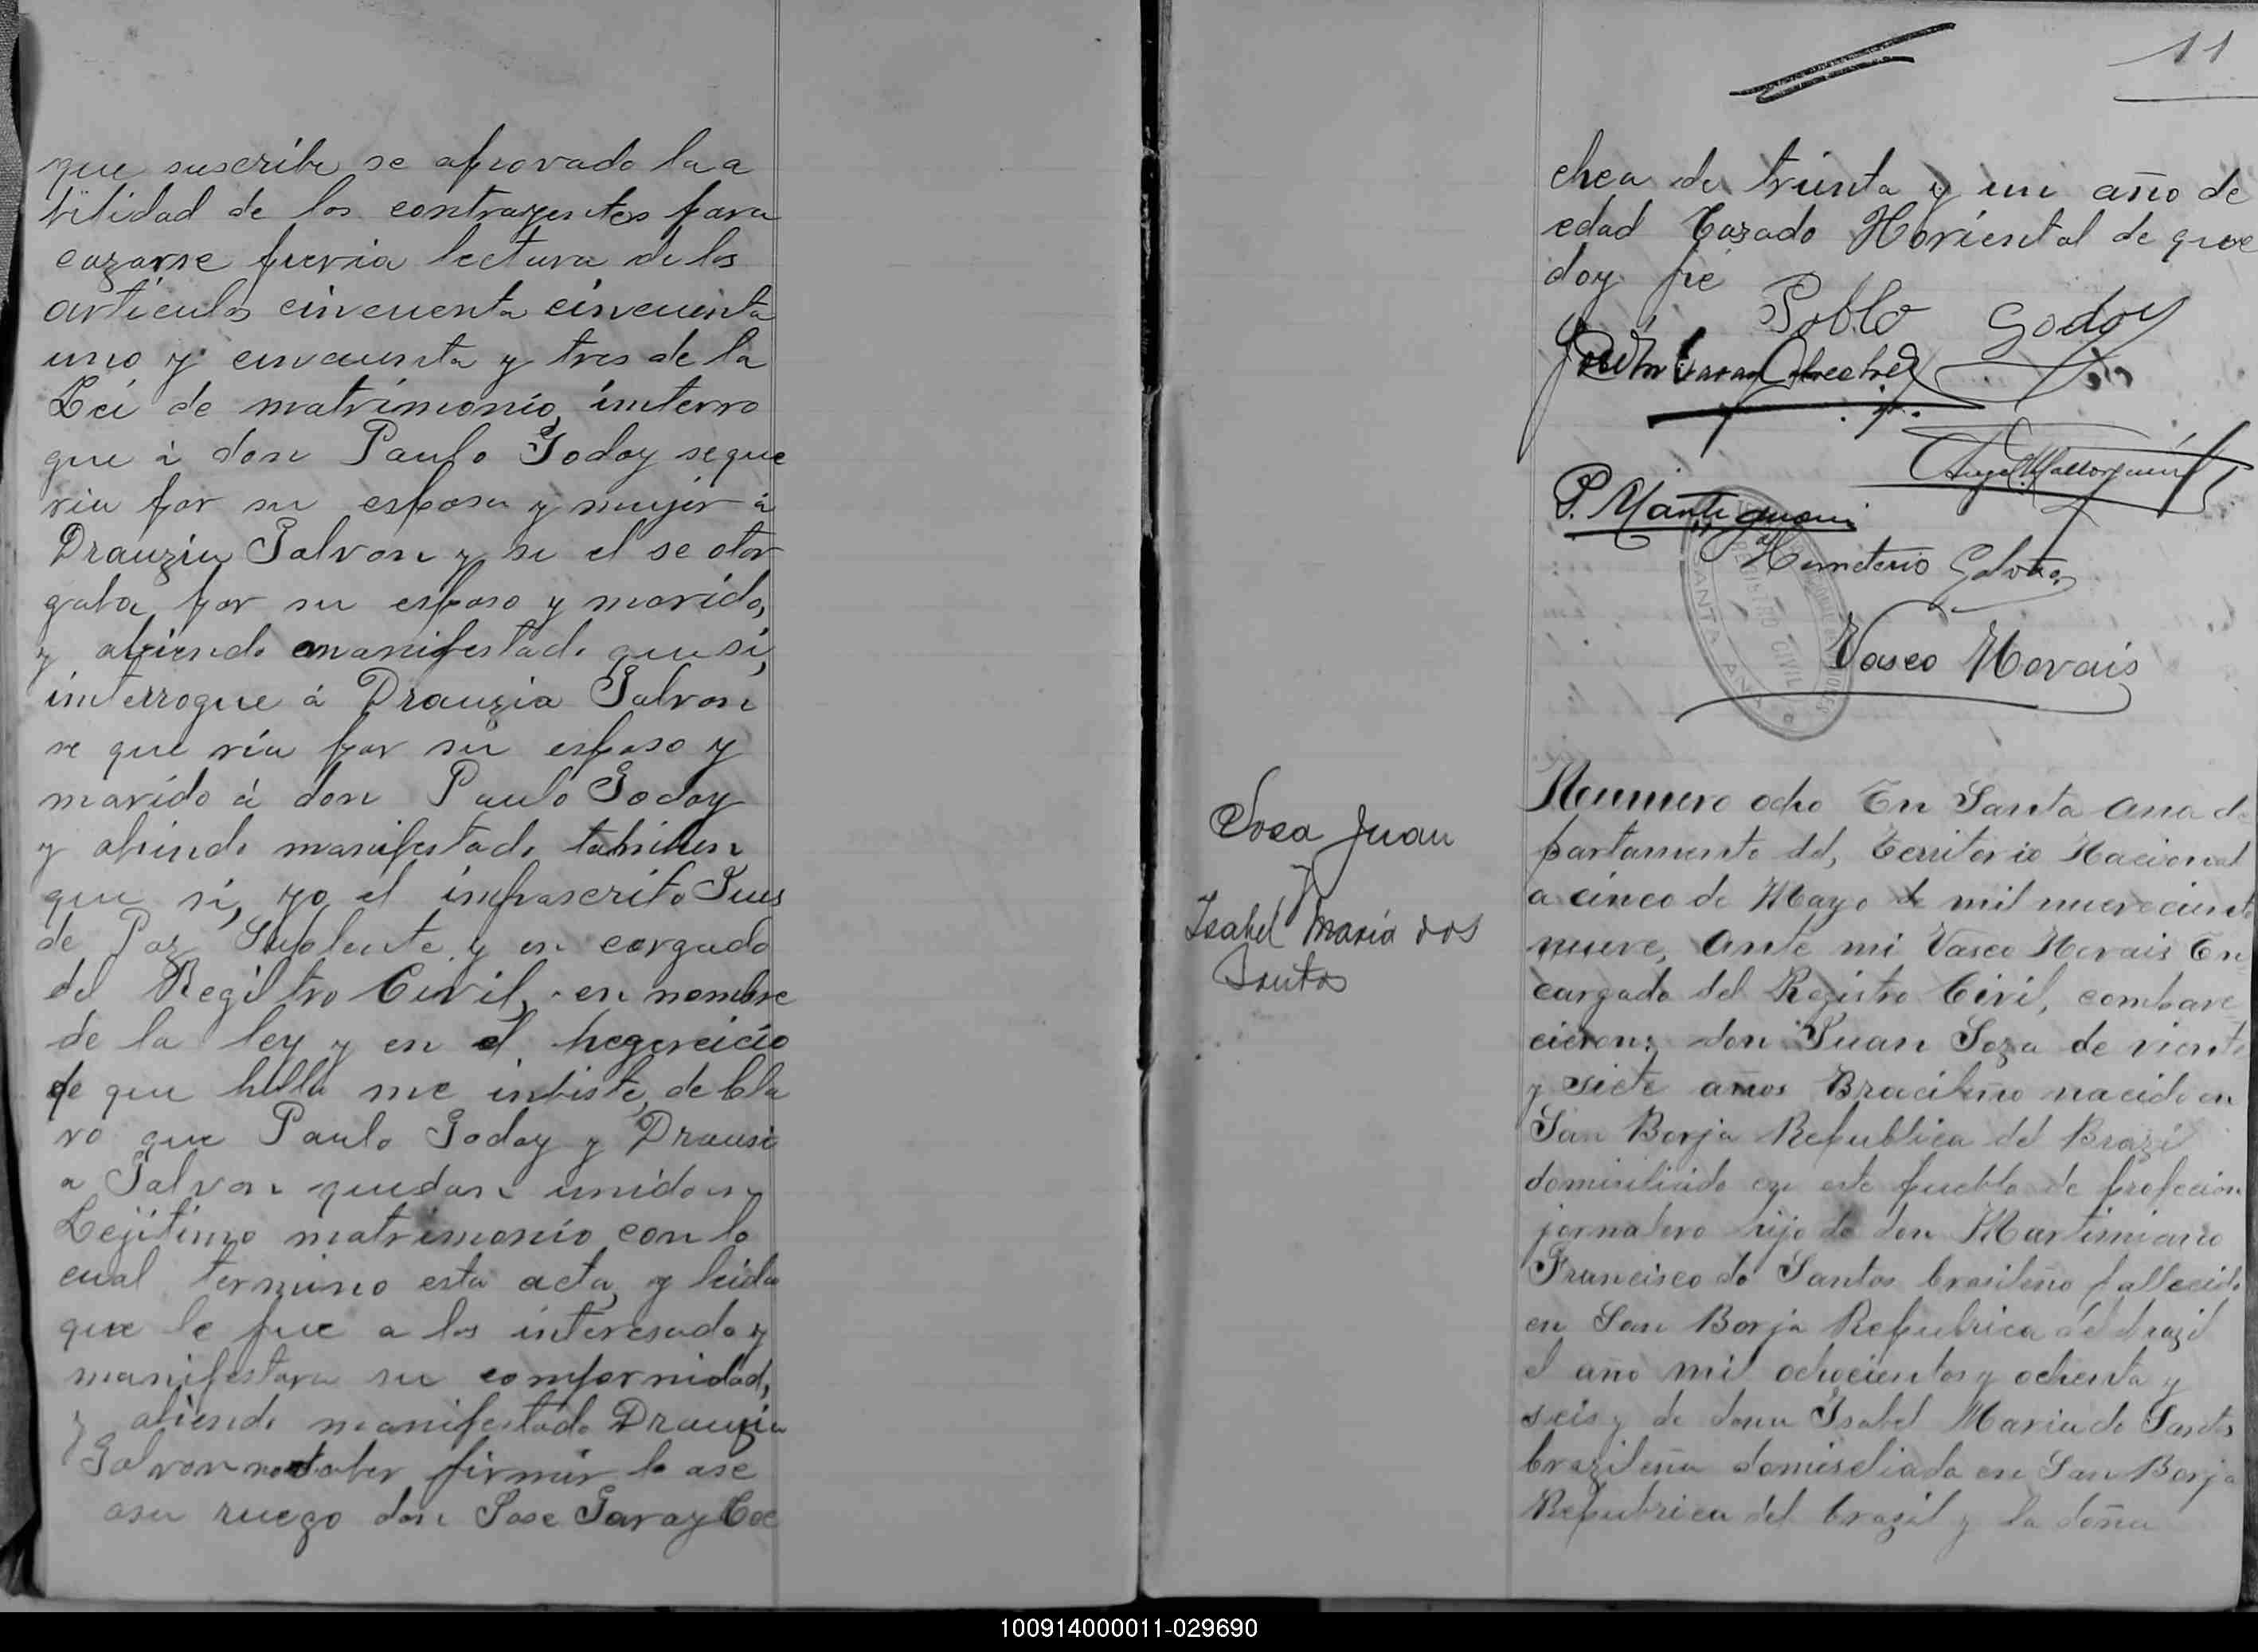 que suscribe se aprovado la a
bilidad de los contrayentes para
cazarse previa lectura de los
articulos cincuenta cincuenta
uno y cincuenta y tres de la
Lei de matrimonio, interro
gue á don Paulo Godoy se que
ria por su esposa y mujer á
Drauzia Galvon y si el se otor
gaba por su esposo y marido,
y abiendo manifestado que si,
interrogue á Drauzia Galvon
se que ria por su esposo y
marido á don Paulo Godoy
y abiendo manifestado tabien
que si, yo el infrascrito Jues
de Paz Suplente y en cargado
del Registro Civil, en nombre
de la ley y en el hegercicio
de que hella me inbiste, de cla
ro que Paulo Godoy y Drausi
a Galvon quedan unidos en
Lejitimo matrimonio con lo
cual termino esta acta, y leida
que le fue a los interesado y
manifestara su comformidad,
y abiendo manifestado Drauzia
Galvon no saber firmar lo ase
asu ruego don Jose Garay Coe
11
chea de trinta y un año de
edad Cazado Horiental de que
doy fé
Poblo Godoy
P. Mantignoni
Hemeterio Galvão
Vasco Morais
REGISTRO CIVIL
SANTA ANA
Sosa Juan
y
Isabel Maria dos
Santos
Nummero ocho En Santa Ana de
partamento del, Territorio Nacional
a cinco de Mayo de mil nueveciento
nueve, Ante mi Vasco Morais En
cargado del Registro Civil, compare
cieron: don Juan Soza de viente
y siete años Braciliño nacido en
San Borja Republica del Brazil
domisiliado en este pueblo de profecion
jornalero hijo de don Martimiano
Francisco do Santos brasileño fallecido
en San Borja Republica del brazil
el año mil ochocientos y ochenta y
seis y de dona Isabel Maria do Santos
brazileña domiseliada en San Borja
Republica del brazil y la doña
100914000011-029690